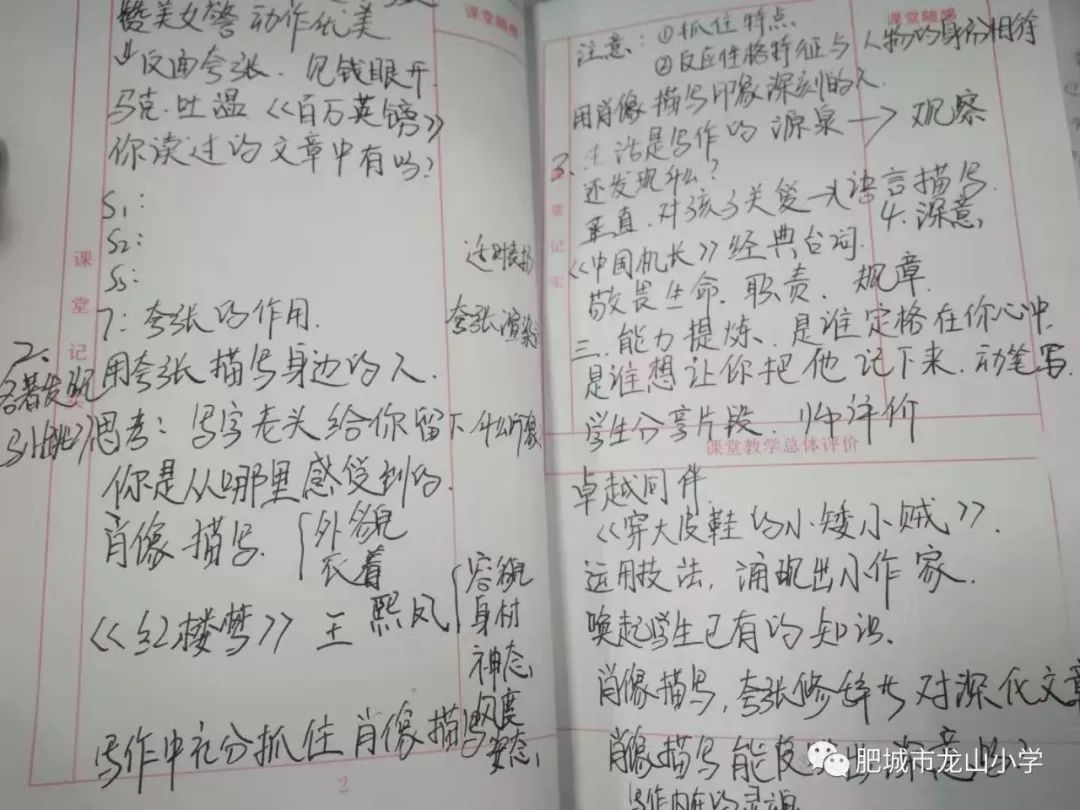 赞美女警 动作优美
反面夸张. 见钱眼开
马克.吐温《百万英镑》
你读过的文章中有吗?
S1:
S2:
S3:
7: 夸张的作用.
夸张渲染
2.
课堂记
用夸张描写身边的人.
思考: 写字老头给你留下什么印象
你是从哪里感受到的.
肖像描写. 外貌
衣着
《红楼梦》王熙凤 容貌
身材
神态
风度
姿态
写作中充分抓住肖像描写
2
课堂随感
课堂随感
注意: ①抓住特点
②反应性格特征与人物的身份相符
用肖像描写印象深刻的人.
3、生活是写作的源泉 → 观察
还发现什么?
垂直. 对孩子关爱 语言描写
4.深意
《中国机长》经典台词.
敬畏生命. 职责. 规章.
三.能力提炼. 是谁定格在你心中.
是谁想让你把他记下来. 动笔写.
学生分享片段. 师评价
课堂教学总体评价
卓越同伴
《穿大皮鞋的小矮小贼》.
运用技法, 涌现出小作家.
唤起学生已有的知识.
肖像描写, 夸张修辞 对深化文章
肖像描写能
肥城市龙山小学